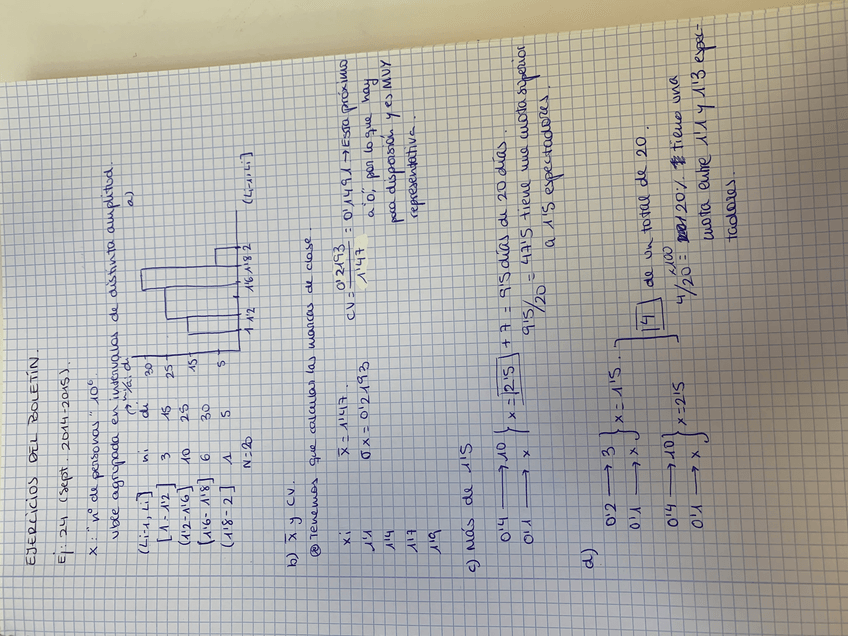 EJERCICIOS DEL BOLETÍN.
Ej: 24 (sept. 2014-2015).
X: "nº de personas" 10⁶
vble agrupada en intervalos de distinta amplitud.
(Li-1, Li] ni di
[1 - 1'2] 3 15
(1'2-1'6] 10 25
[1'6-1'8] 6 30
(1'8-2] 1 5
N=20
a)
30
25
15
5
1 1'2 1'6 1'8 2 (Li-1 Li]
b) x̄ y CV.
⊛ Tenemos que calcular las marcas de clase.
xi
1'1
1'4
1'7
1'9
x̄ = 1'47.
σx = 0'2193
CV = 0'2193 / 1'47 = 0'1491 → Está próximo
a "0", por lo que hay
poca dispersión y es MUY
representativa.
c) Más de 1'5
0'4 → 10
0'1 → x } x = 2'5 + 7 = 9'5 días de 20 días.
9'5/20 = 47'5 tiene una nota superior
a 1'5 espectadores.
d)
0'2 → 3
0'1 → x } x = 1'5.
0'4 → 10
0'1 → x } x = 2'5
4 de un total de 20.
4/20 = x100 20% tiene una
nota entre 1'1 y 1'3 espec-
tadores.